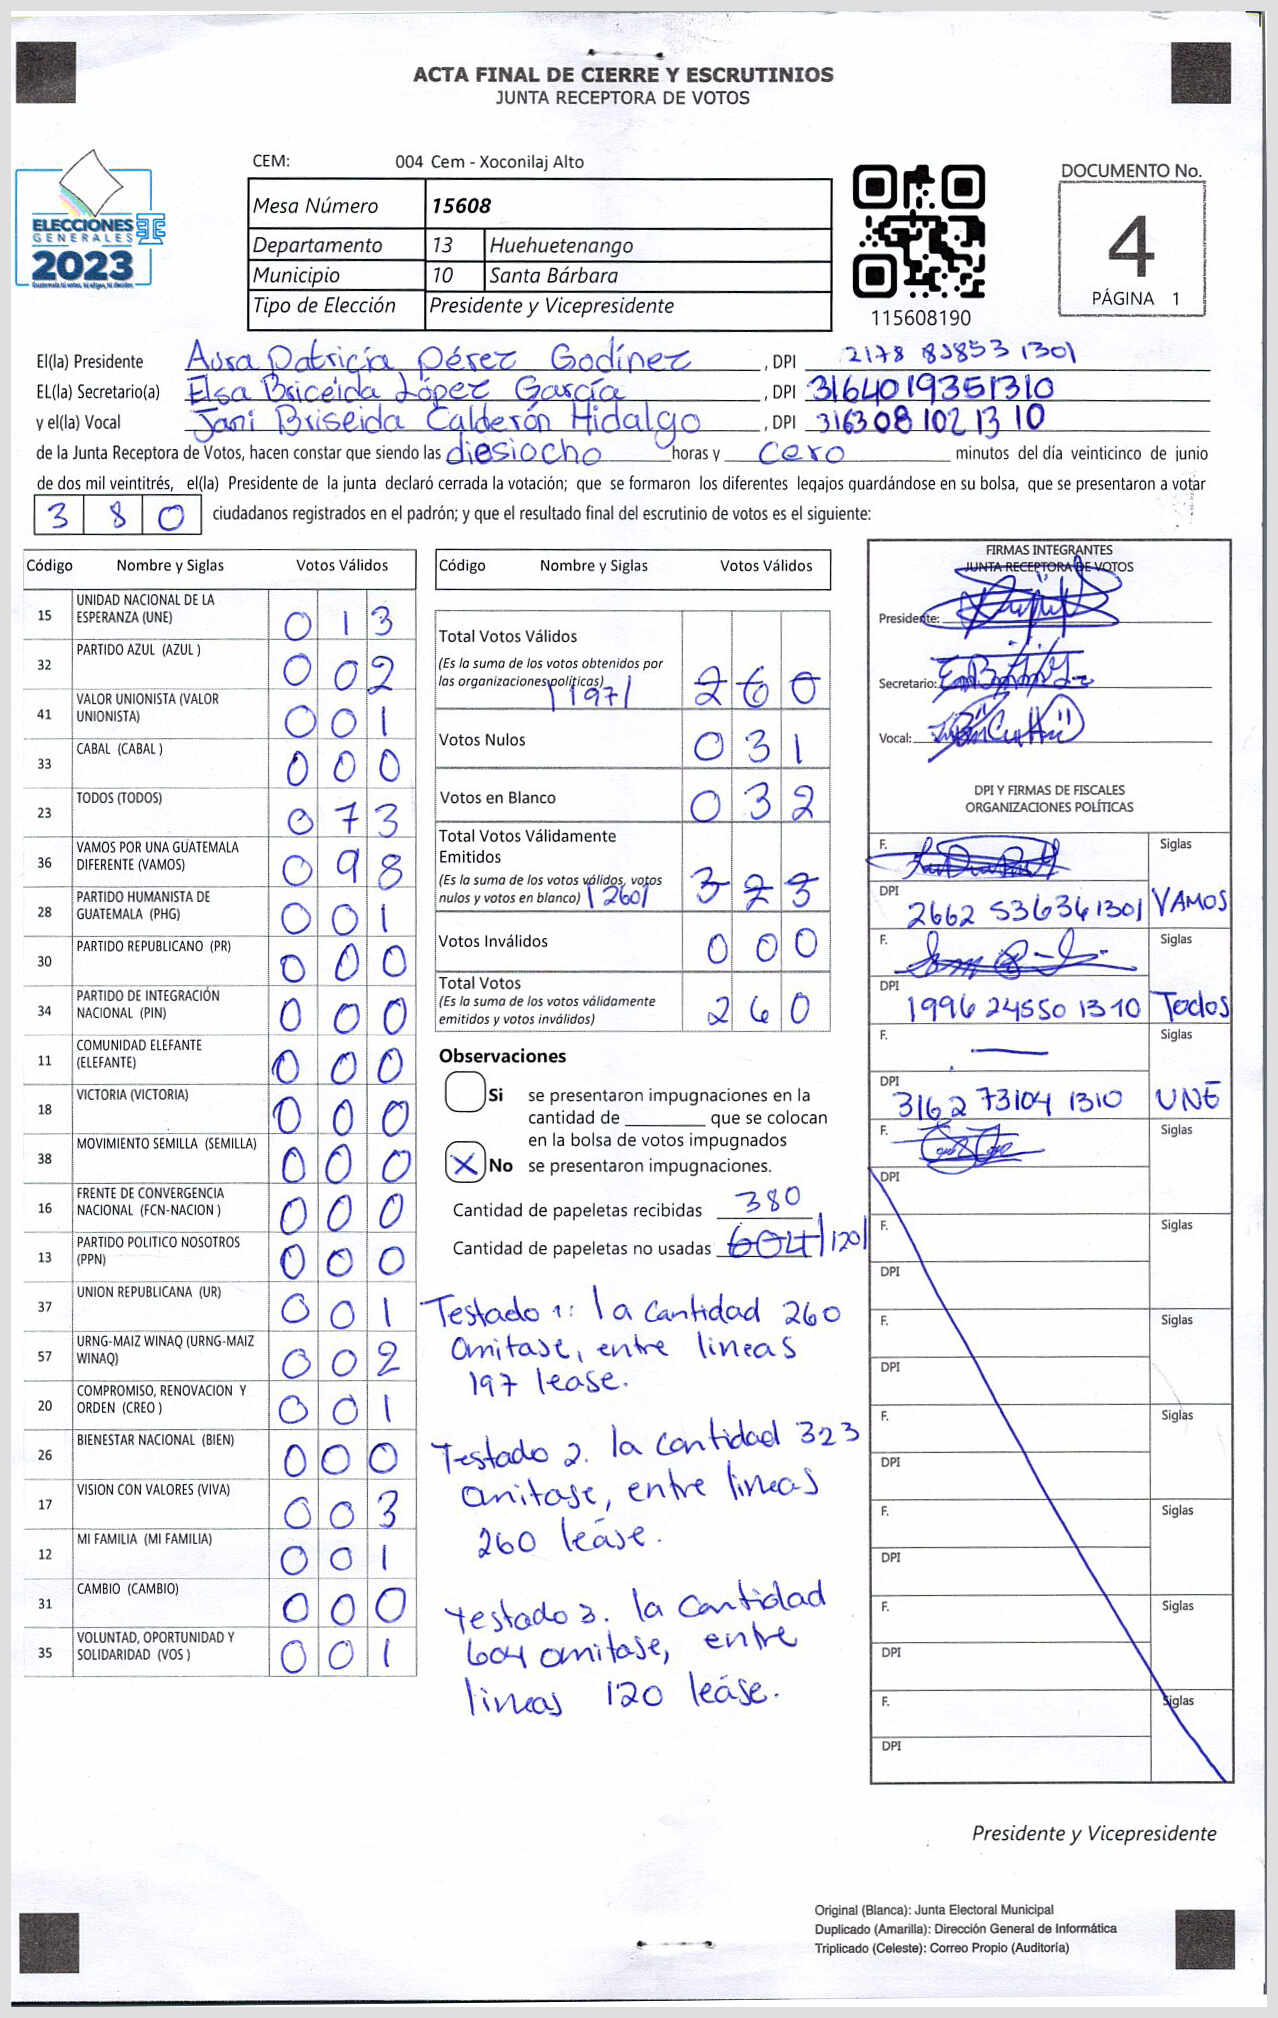 ACTA FINAL DE CIERRE Y ESCRUTINIOS
JUNTA RECEPTORA DE VOTOS
ELECCIONES
GENERALES
2023
CEM: 004 Cem - Xoconilaj Alto
Mesa Número 15608
Departamento 13 Huehuetenango
Municipio 10 Santa Bárbara
Tipo de Elección Presidente y Vicepresidente
115608190
DOCUMENTO No.
4
PÁGINA 1
El(la) Presidente Aura Patricia Pérez Godínez, DPI 2178 1301
EL(la) Secretario(a) Elsa Briceida López García, DPI 3164019351310
y el(la) Vocal Jani Briseida Calderón Hidalgo, DPI 316308102 13 10
de la Junta Receptora de Votos, hacen constar que siendo las diesiocho horas y cero minutos del día veinticinco de junio
de dos mil veintitrés, el(la) Presidente de la junta declaró cerrada la votación; que se formaron los diferentes legajos guardándose en su bolsa, que se presentaron a votar
3 8 0 ciudadanos registrados en el padrón; y que el resultado final del escrutinio de votos es el siguiente:
Código Nombre y Siglas Votos Válidos
15 UNIDAD NACIONAL DE LA ESPERANZA (UNE) 0 1 3
32 PARTIDO AZUL (AZUL ) 0 0 2
41 VALOR UNIONISTA (VALOR UNIONISTA) 0 0 1
33 CABAL (CABAL ) 0 0 0
23 TODOS (TODOS) 0 7 3
36 VAMOS POR UNA GUATEMALA DIFERENTE (VAMOS) 0 9 8
28 PARTIDO HUMANISTA DE GUATEMALA (PHG) 0 0 1
30 PARTIDO REPUBLICANO (PR) 0 0 0
34 PARTIDO DE INTEGRACIÓN NACIONAL (PIN) 0 0 0
11 COMUNIDAD ELEFANTE (ELEFANTE) 0 0 0
18 VICTORIA (VICTORIA) 0 0 0
38 MOVIMIENTO SEMILLA (SEMILLA) 0 0 0
16 FRENTE DE CONVERGENCIA NACIONAL (FCN-NACION ) 0 0 0
13 PARTIDO POLITICO NOSOTROS (PPN) 0 0 0
37 UNION REPUBLICANA (UR) 0 0 1
57 URNG-MAIZ WINAQ (URNG-MAIZ WINAQ) 0 0 2
20 COMPROMISO, RENOVACION Y ORDEN (CREO ) 0 0 1
26 BIENESTAR NACIONAL (BIEN) 0 0 0
17 VISION CON VALORES (VIVA) 0 0 3
12 MI FAMILIA (MI FAMILIA) 0 0 1
31 CAMBIO (CAMBIO) 0 0 0
35 VOLUNTAD, OPORTUNIDAD Y SOLIDARIDAD (VOS ) 0 0 1
Código Nombre y Siglas Votos Válidos
Total Votos Válidos
(Es la suma de los votos obtenidos por
las organizaciones políticas) |197| 2 6 0
Votos Nulos 0 3 1
Votos en Blanco 0 3 2
Total Votos Válidamente
Emitidos
(Es la suma de los votos válidos, votos
nulos y votos en blanco) |260| 3 2 3
Votos Inválidos 0 0 0
Total Votos
(Es la suma de los votos válidamente
emitidos y votos inválidos) 2 6 0
Observaciones
Si se presentaron impugnaciones en la
cantidad de ________ que se colocan
en la bolsa de votos impugnados
X No se presentaron impugnaciones.
Cantidad de papeletas recibidas 380
Cantidad de papeletas no usadas 604 |120|
Testado 1: la cantidad 260
omitase, entre lineas
197 lease.
Testado 2. la cantidad 323
omitase, entre lineas
260 leáse.
Testado 3. la cantidad
604 omitase, entre
lineas 120 leáse.
FIRMAS INTEGRANTES
JUNTA RECEPTORA DE VOTOS
Presidente:
Secretario:
Vocal:
DPI Y FIRMAS DE FISCALES
ORGANIZACIONES POLÍTICAS
F. Siglas
DPI 2662 536361301 VAMOS
F. Siglas
DPI 1996 24550 1310 Todos
F. Siglas
DPI 3162 73104 1310 UNE
F. Siglas
DPI
F. Siglas
DPI
F. Siglas
DPI
F. Siglas
DPI
F. Siglas
DPI
F. Siglas
DPI
F. Siglas
DPI
Presidente y Vicepresidente
Original (Blanca): Junta Electoral Municipal
Duplicado (Amarilla): Dirección General de Informática
Triplicado (Celeste): Correo Propio (Auditoría)